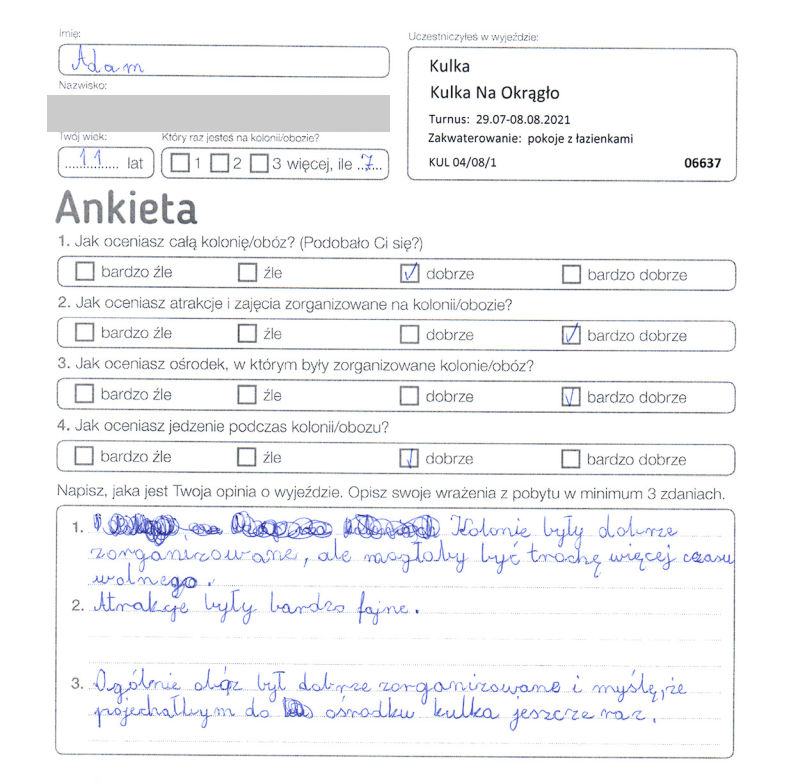 Imię:
Adam
Nazwisko:
Twój wiek:
11 lat
Który raz jesteś na kolonii/obozie?
1 2 3 więcej, ile 7
Uczestniczyłeś w wyjeździe:
Kulka
Kulka Na Okrągło
Turnus: 29.07-08.08.2021
Zakwaterowanie: pokoje z łazienkami
KUL 04/08/1 06637
Ankieta
1. Jak oceniasz całą kolonię/obóz? (Podobało Ci się?)
bardzo źle źle dobrze bardzo dobrze
2. Jak oceniasz atrakcje i zajęcia zorganizowane na kolonii/obozie?
bardzo źle źle dobrze bardzo dobrze
3. Jak oceniasz ośrodek, w którym były zorganizowane kolonie/obóz?
bardzo źle źle dobrze bardzo dobrze
4. Jak oceniasz jedzenie podczas kolonii/obozu?
bardzo źle źle dobrze bardzo dobrze
Napisz, jaka jest Twoja opinia o wyjeździe. Opisz swoje wrażenia z pobytu w minimum 3 zdaniach.
1. Kolonie były dobrze
zorganizowane, ale mogłoby być trochę więcej czasu
wolnego.
2. Atrakcje były bardzo fajne.
3. Ogólnie obóz był dobrze zorganizowane i myślę, że
pojechałbym do ośrodku kulka jeszcze raz.